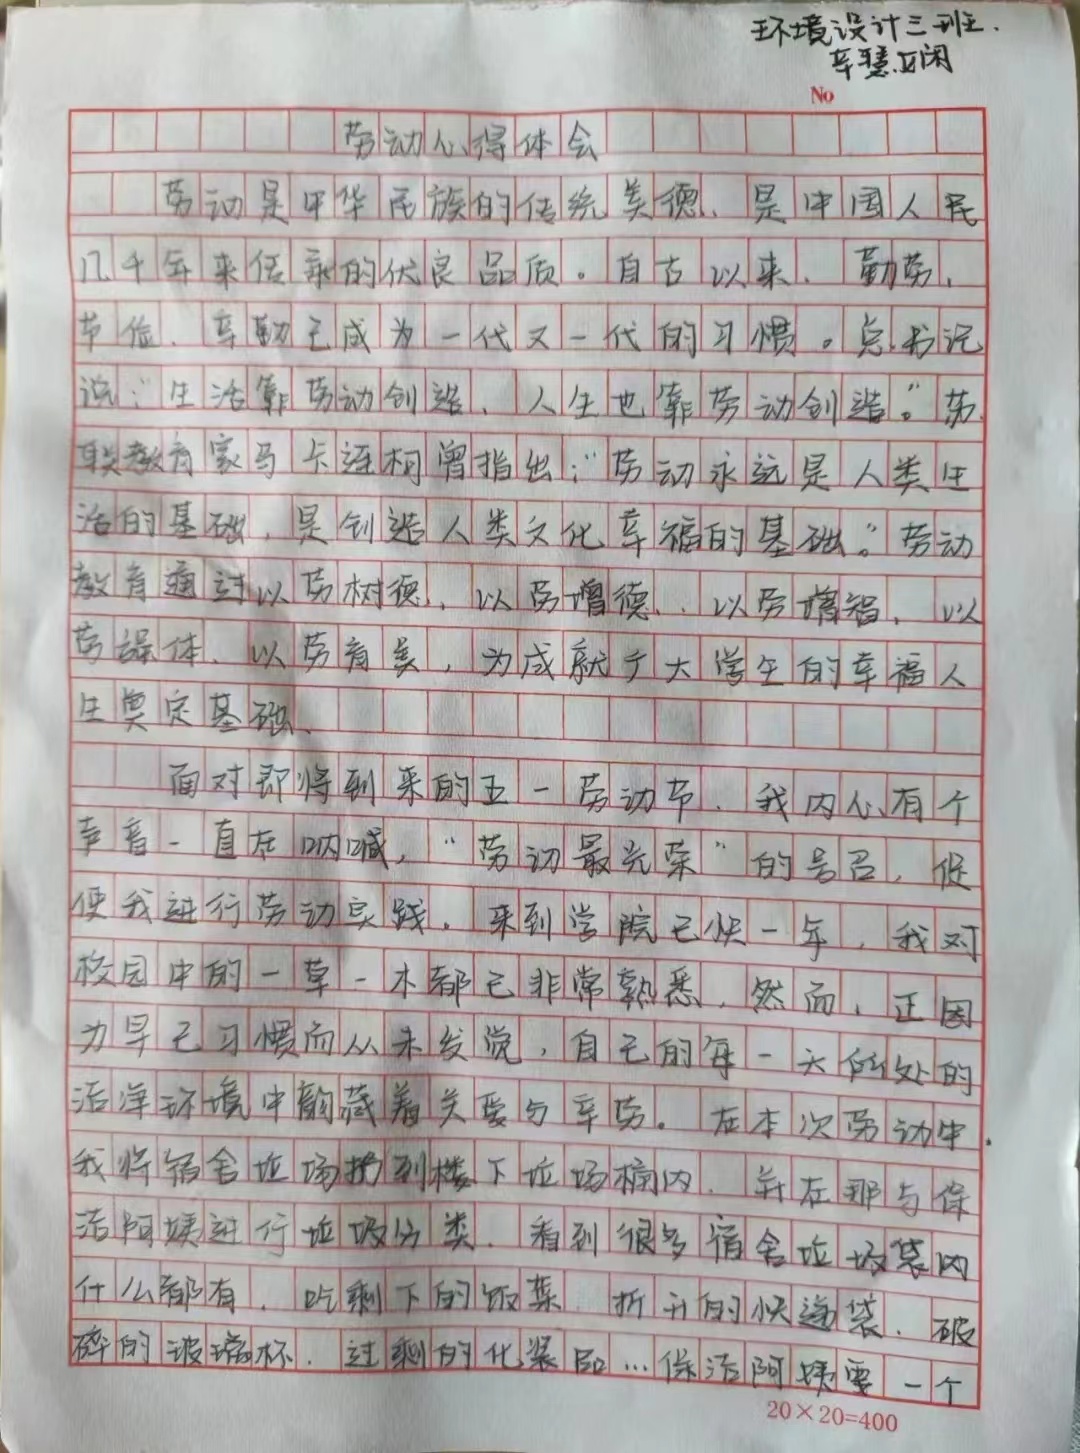 环境设计三班.
辛慧闲
No
劳动心得体会
劳动是中华民族的传统美德、是中国人民
几千年来传承的优良品质。自古以来、勤劳、
节俭、辛勤已成为一代又一代的习惯。总书记
说:“生活靠劳动创造、人生也靠劳动创造。”苏
联教育家马卡连柯曾指出:“劳动永远是人类生
活的基础,是创造人类文化幸福的基础。”劳动
教育通过以劳树德、以劳增德、以劳增智、以
劳操体、以劳育美,为成就于大学生的幸福人
生奠定基础、
面对即将到来的五一劳动节、我内心有个
声音一直在呐喊,“劳动最光荣”的号召,促
使我进行劳动实践。来到学院已快一年,我对
校园中的一草一木都已非常熟悉、然而、正因
为早已习惯而从未发觉,自己的每一天所处的
洁净环境中韵藏着关爱与辛劳。在本次劳动中.
我将宿舍垃圾扔到楼下垃圾桶内、并在那与保
洁阿姨进行垃圾分类、看到很多宿舍垃圾袋内
什么都有、吃剩下的饭菜、折开的快递袋、破
碎的玻璃杯、过剩的化装品…保洁阿姨要一个
20×20=400